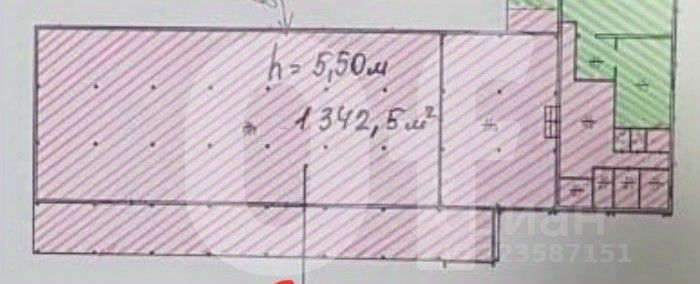 h = 5,50 м
1342,5 м²
циан
23587151